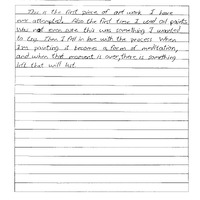 This is the first piece of art work I have
ever attempted. Also the first time I used oil paints.
Was not even sure this was something I wanted
to try. Then I fell in love with the process. When
I'm painting it becomes a form of meditation,
and when that moment is over, there is something
left that will last.